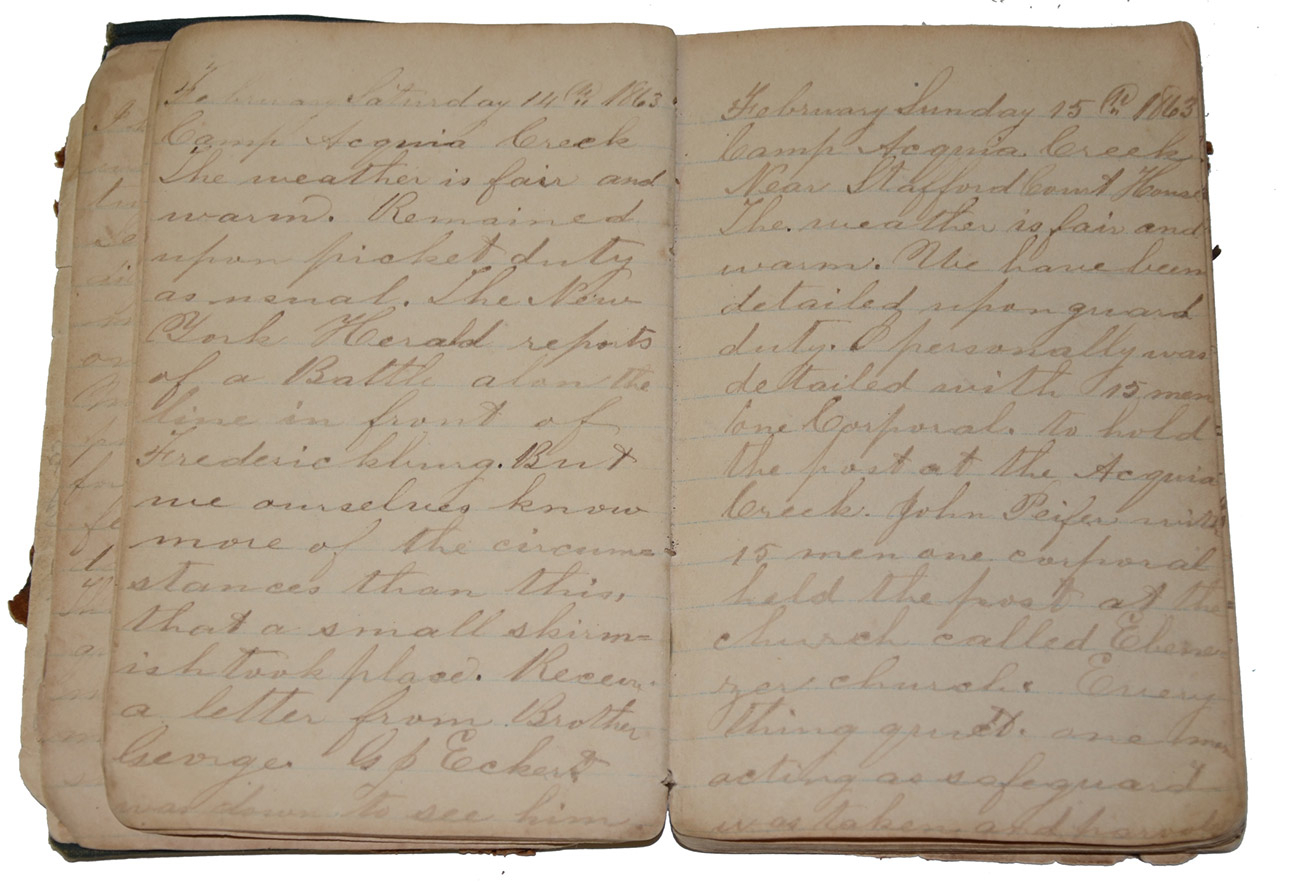 February Saturday 14th 1863.
Camp Acquia Creek
The weather is fair and
warm. Remained
upon picket duty
as usual. The New
York Herald reports
of a Battle alon the
line in front of
Frederickburg. But
we ourselves know
more of the circum=
stances than this,
that a small skirm=
ish took place. Receiv.
a letter from Brother
George. G p Eckert
was down to see him.
February Sunday 15th 1863
Camp Acquia Creek
Near Stafford Court House
The weather is fair and
warm. We have been
detailed upon guard
duty. I personally was
dettailed with 15 men
one Corporal. to hold
the post at the Acquia
Creek. John Peifer with
15 men one corporal
held the post at the
church called Ebene=
zer church. Every
thing quiet. one man
acting as safeguard
was taken and